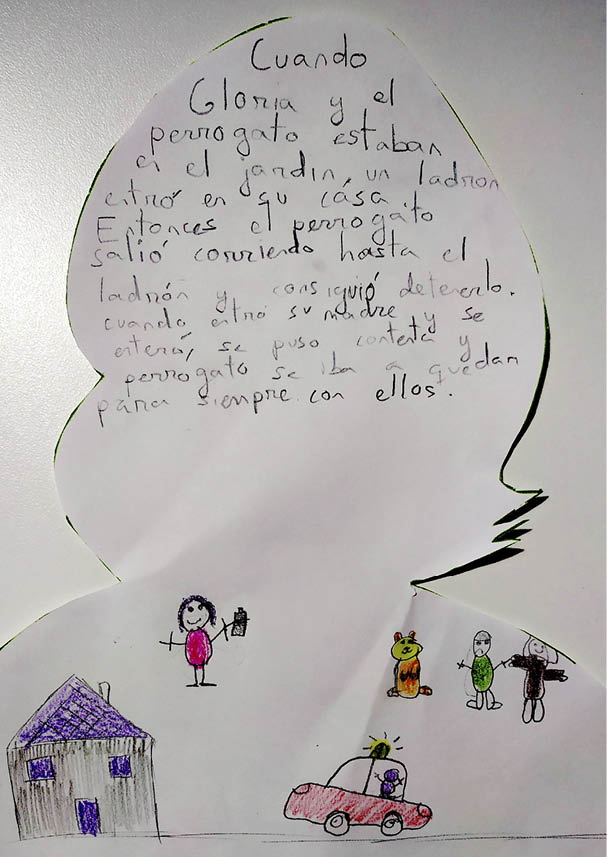 Cuando
Gloria y el
perrogato estaban
en el jardin, un ladron
entró en su cása.
Entonces el perrogato
salió corriendo hasta el
ladrón y consiguió detenerlo.
cuando entró su madre y se
enteró, se puso contenta y
perrogato se iba a quedar
para siempre con ellos.